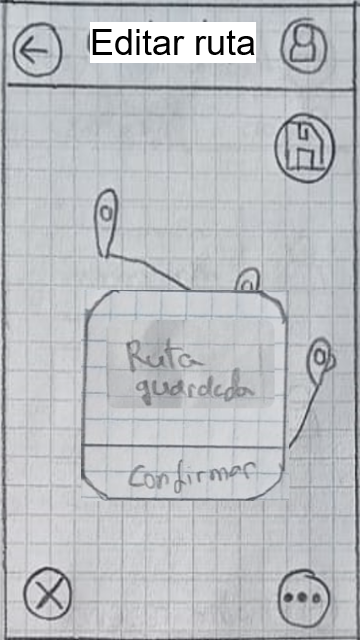 Editar ruta
Ruta
guardada
Confirmar